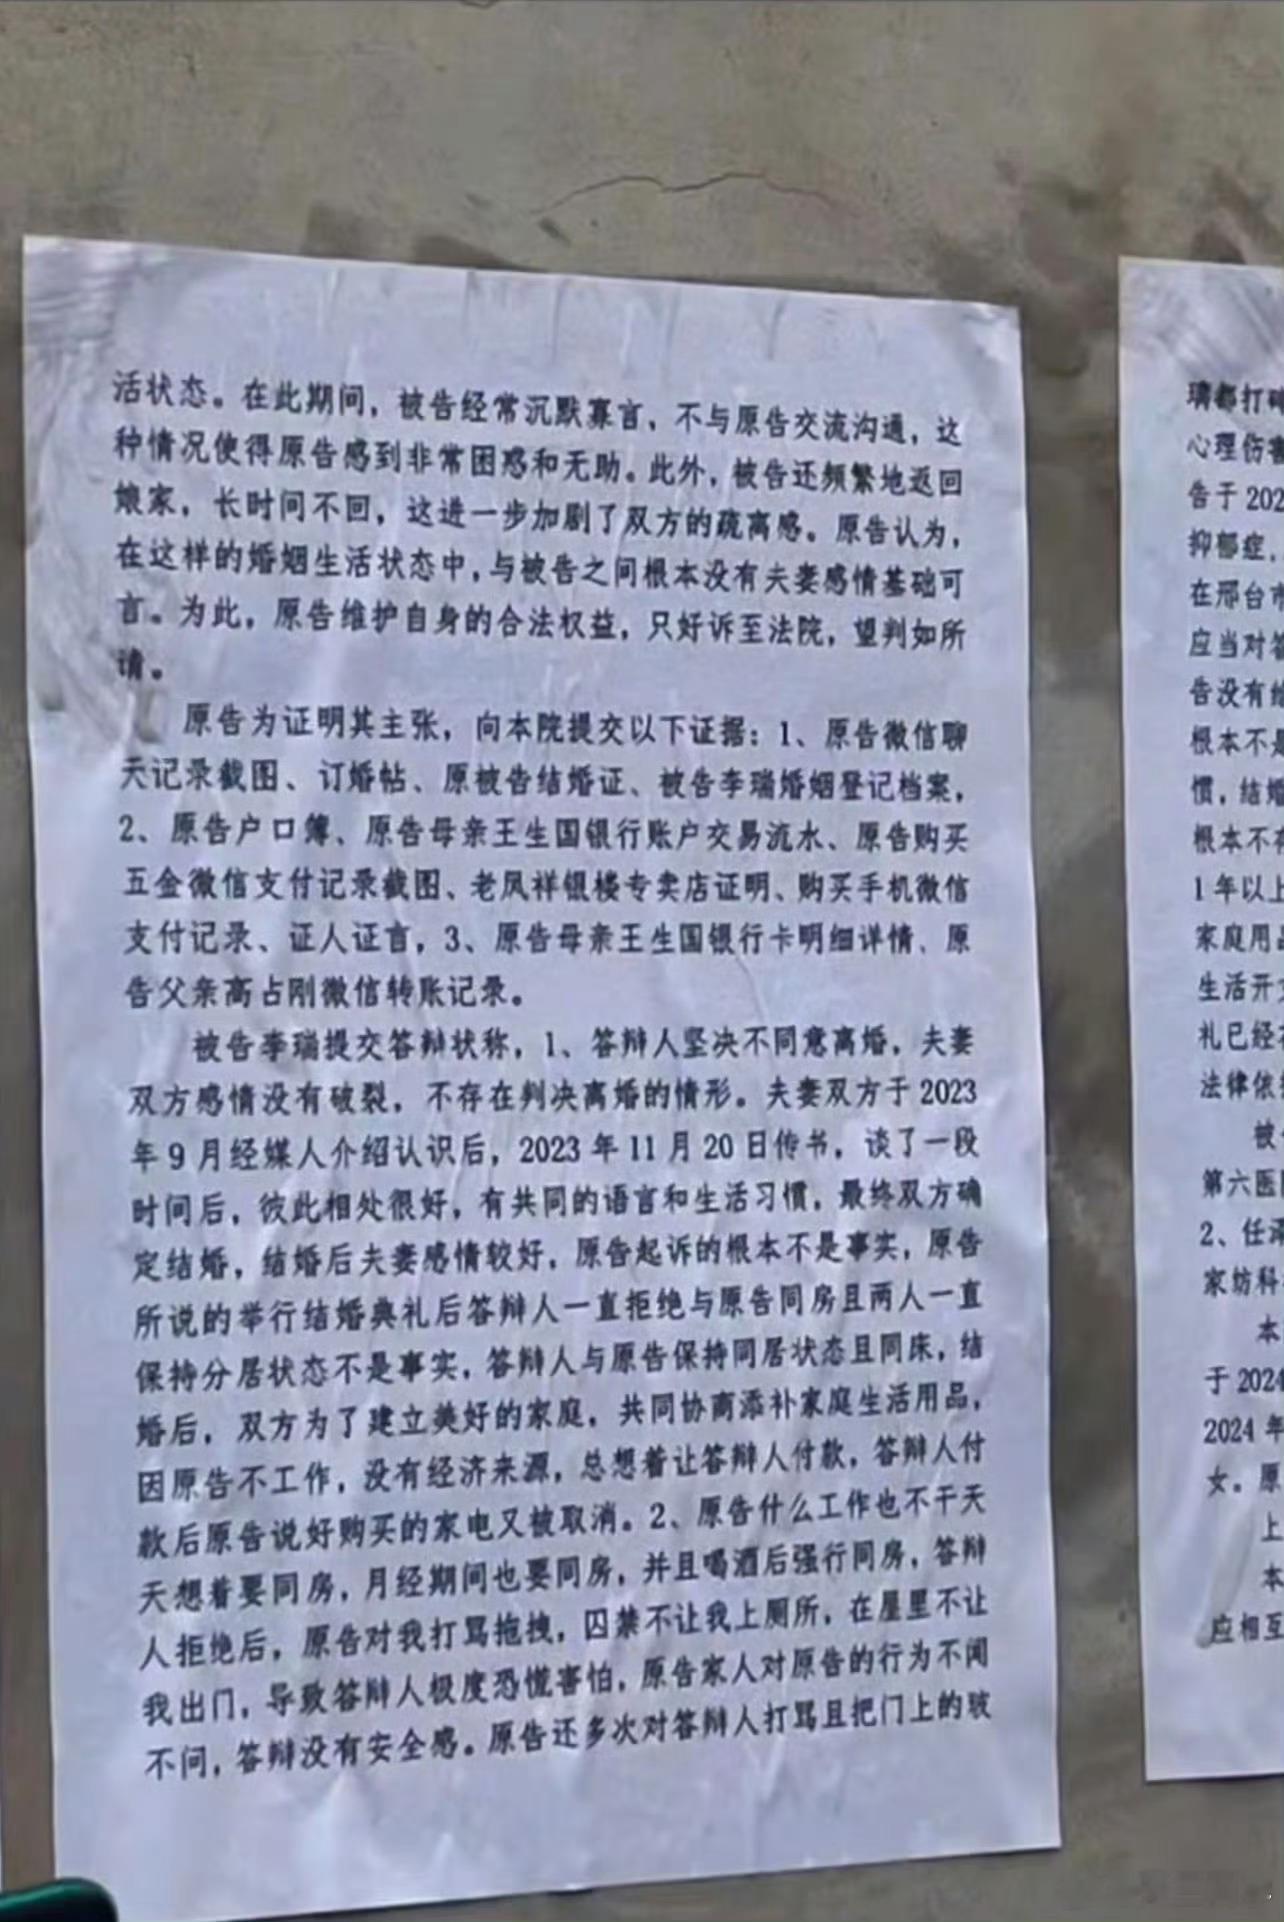 活状态。在此期间，被告经常沉默寡言，不与原告交流沟通，这
种情况使得原告感到非常困惑和无助。此外，被告还频繁地返回
娘家，长时间不回，这进一步加剧了双方的疏离感。原告认为，
在这样的婚姻生活状态中，与被告之间根本没有夫妻感情基础可
言。为此，原告维护自身的合法权益，只好诉至法院，望判如所
请。
原告为证明其主张，向本院提交以下证据：1、原告微信聊
天记录截图、订婚帖、原被告结婚证、被告李瑞婚姻登记档案，
2、原告户口簿、原告母亲王生国银行账户交易流水、原告购买
五金微信支付记录截图、老凤祥银楼专卖店证明、购买手机微信
支付记录、证人证言，3、原告母亲王生国银行卡明细详情、原
告父亲高占刚微信转账记录。
被告李瑞提交答辩状称，1、答辩人坚决不同意离婚，夫妻
双方感情没有破裂，不存在判决离婚的情形。夫妻双方于2023
年9月经媒人介绍认识后，2023年11月20日传书，谈了一段
时间后，彼此相处很好，有共同的语言和生活习惯，最终双方确
定结婚，结婚后夫妻感情较好，原告起诉的根本不是事实，原告
所说的举行结婚典礼后答辩人一直拒绝与原告同房且两人一直
保持分居状态不是事实，答辩人与原告保持同居状态且同床，结
婚后，双方为了建立美好的家庭，共同协商添补家庭生活用品，
因原告不工作，没有经济来源，总想着让答辩人付款，答辩人付
款后原告说好购买的家电又被取消。2、原告什么工作也不干天
天想着要同房，月经期间也要同房，并且喝酒后强行同房，答辩
人拒绝后，原告对我打骂拖拽，囚禁不让我上厕所，在屋里不让
我出门，导致答辩人极度恐慌害怕，原告家人对原告的行为不闻
不问，答辩没有安全感。原告还多次对答辩人打骂且把门上的玻
璃都打碎
心理伤害
告于202
抑郁症，
在邢台市
应当对答
告没有结
根本不是
惯，结婚
根本不存
1年以上
家庭用品
生活开支
礼已经
法律依据
被
第六医
2、任
家纺科
本
于2024
2024年
女。原
上
本
应相互